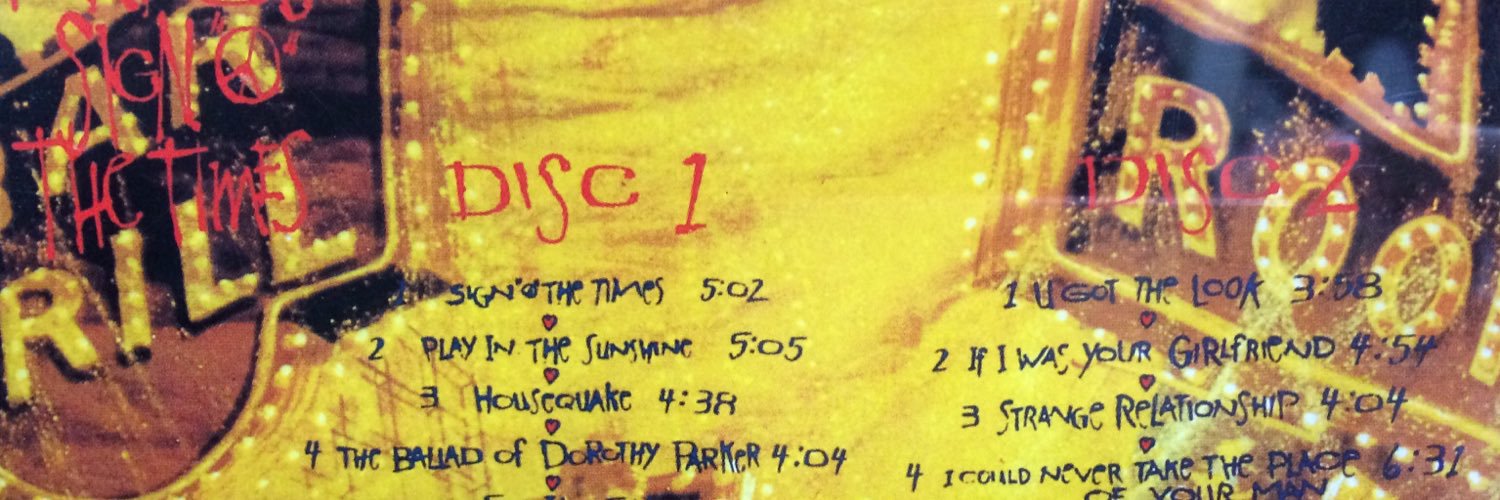 SIGN "☮"
THE TIMES
RILL
ROO
DISC 1
1 SIGN "☮" THE TIMES 5:02
2 PLAY IN THE SUNSHINE 5:05
3 HOUSEQUAKE 4:38
4 THE BALLAD of DOROTHY PARKER 4:04
5
DISC 2
1 U GOT THE LOOK 3:58
2 If I WAS YOUR GIRLFRIEND 4:54
3 STRANGE RELATIONSHIP 4:04
4 I COULD NEVER TAKE THE PLACE 6:31
OF YOUR MAN